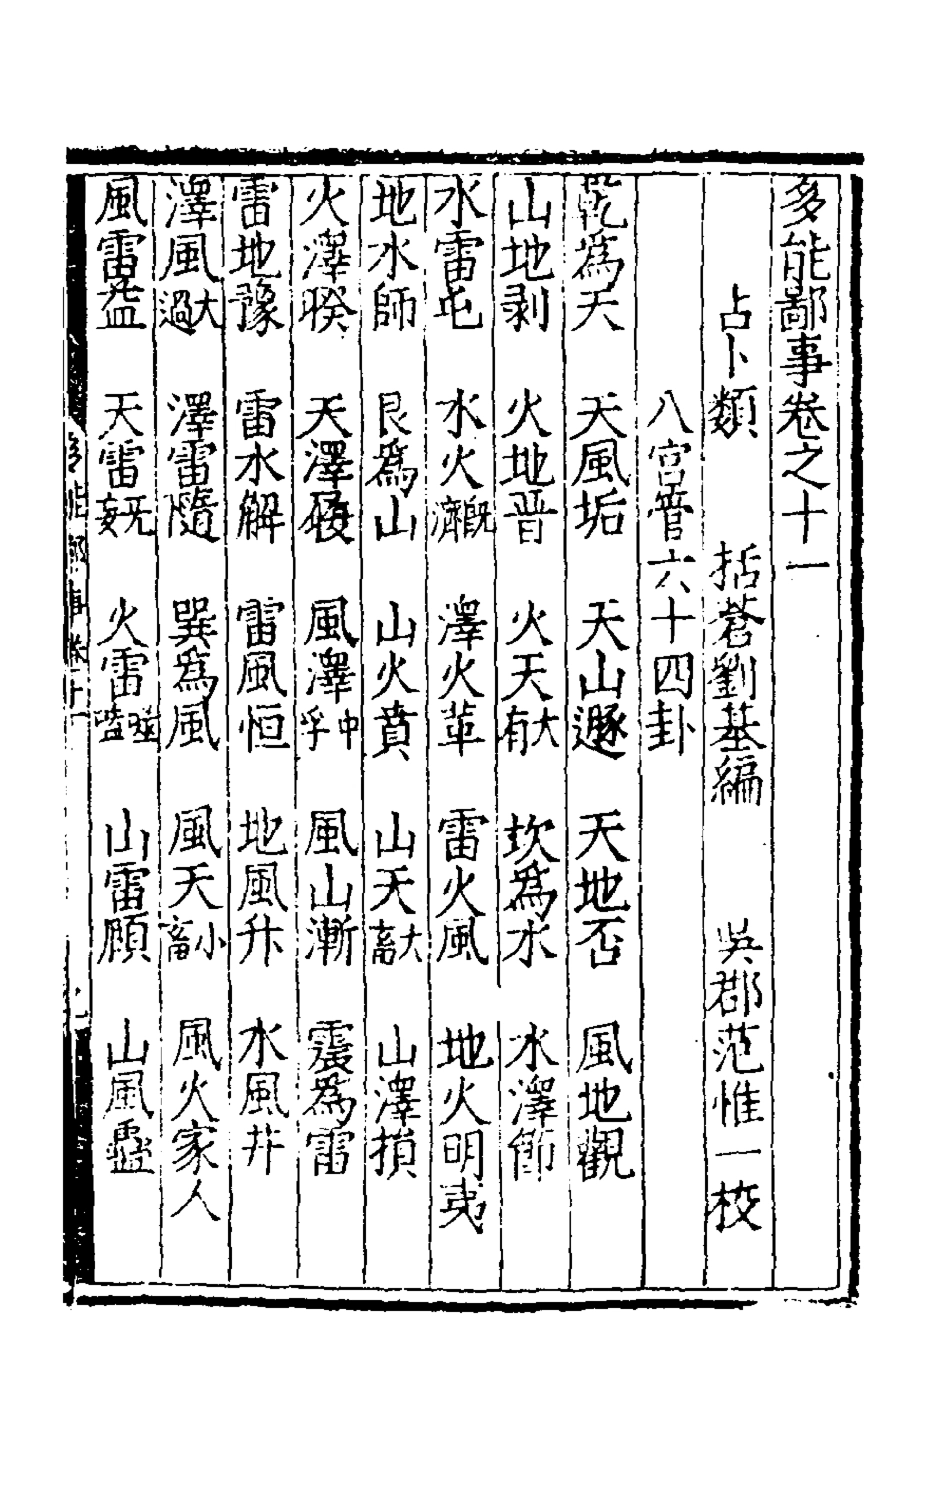 多能鄙事卷之十一
占卜類　括蒼劉基編　吳郡范惟一校
八宮管六十四卦
乾為天　天風垢　天山遯　天地否　風地觀
山地剥　火地晋　火天大有　坎為水　水澤節
水雷屯　水火既濟　澤火革　雷火風　地火明夷
地水師　艮為山　山火賁　山天大畜　山澤損
火澤睽　天澤履　風澤中孚　風山漸　震為雷
雷地豫　雷水解　雷風恒　地風升　水風井
澤風大過　澤雷隨　巽為風　風天小畜　風火家人
風雷益　天雷无妄　火雷噬嗑　山雷頤　山風蠱
多能鄙事卷十一